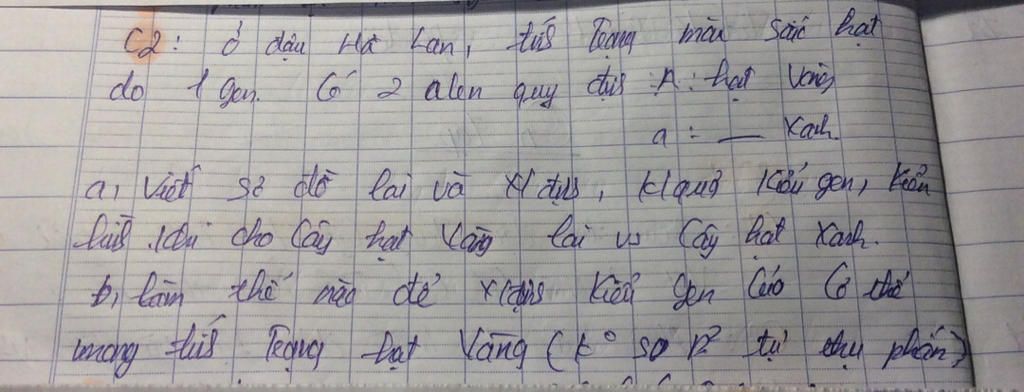 C2: ở đậu Hà Lan, tính trạng màu sắc hạt
do 1 gen. Có 2 alen quy định : A : hạt vàng
a : __ xanh.
a, viết sơ đồ lai và x/định, k/quả kiểu gen, kiểu
hình khi cho cây hạt vàng lai vs cây hạt xanh.
b, làm thế nào để x/định kiểu gen của cơ thể
mang tính trạng hạt vàng (ko sd p2 tự thụ phấn)